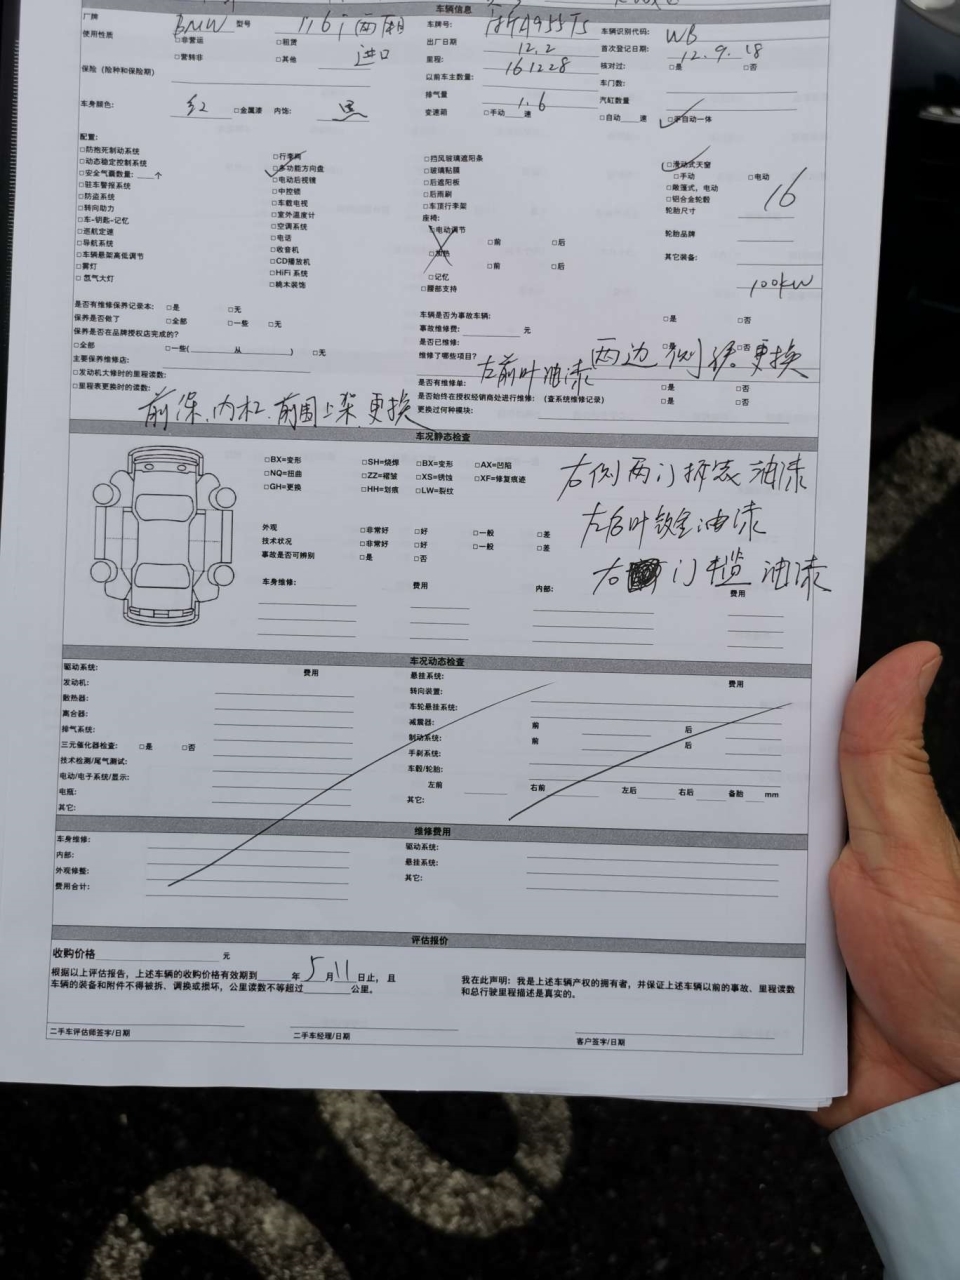 车辆信息
厂牌 BMW 型号 116i 两厢 车牌号: 车辆识别代码: WB
使用性质 □非营运 □租赁 进口 出厂日期 12.2 首次登记日期: 12.9.18
□营转非 □其他 里程: 161228 核对过: □是 □否
保险(险种和保险期) 以前车主数量: 车门数:
排气量 1.6 汽缸数量
车身颜色: 红 □金属漆 内饰: 黑 变速箱 □手动 速 □自动 速 □手自动一体
配置:
□防抱死制动系统 □行李架 □挡风玻璃遮阳条 □滑动式天窗
□动态稳定控制系统 □多功能方向盘 □玻璃贴膜 □手动 □电动
□安全气囊数量: 个 □电动后视镜 □后遮阳板 □敞篷式,电动
□驻车警报系统 □中控锁 □后雨刷 □铝合金轮毂 16
□防盗系统 □车载电视 □车顶行李架 轮胎尺寸
□转向助力 □室外温度计 座椅:
□车-钥匙-记忆 □空调系统 □电动调节 轮胎品牌
□巡航定速 □电话 □前 □后
□导航系统 □收音机 □加热 其它装备:
□车辆悬架高低调节 □CD播放机 □前 □后
□雾灯 □HiFi 系统 □记忆 100kW
□氙气大灯 □桃木装饰 □腰部支持
是否有维修保养记录本: □是 □无 车辆是否为事故车辆: □是 □否
保养是否做了 □全部 □一些 □无 事故维修费: 元
保养是否在品牌授权店完成的? 是否已维修: □是 □否
□全部 □一些( 从 ) □无 维修了哪些项目? 左前叶油漆 两边侧 更换
主要保养维修店:
□发动机大修时的里程读数: 是否有维修单: □是 □否
□里程表更换时的读数: 是否始终在授权经销商处进行维修: (查系统维修记录) □是 □否
前保、内杠、前围上架更换 更换过何种模块:
车况静态检查
□BX=变形 □SH=烧焊 □BX=变形 □AX=凹陷 右侧两门拆装油漆
□NQ=扭曲 □ZZ=褶皱 □XS=锈蚀 □XF=修复痕迹
□GH=更换 □HH=划痕 □LW=裂纹
左后叶钣金油漆
外观 □非常好 □好 □一般 □差
技术状况 □非常好 □好 □一般 □差
事故是否可辨别 □是 □否 右 门槛 油漆
车身维修: 费用 内部: 费用
车况动态检查
驱动系统: 费用 悬挂系统: 费用
发动机: 转向装置:
散热器: 车轮悬挂系统:
离合器: 减震器: 前 后
排气系统: 制动系统: 前 后
三元催化器检查: □是 □否 手刹系统:
技术检测/尾气测试: 车毂/轮胎:
电动/电子系统/显示: 左前 右前 左后 右后 备胎 mm
电瓶: 其它:
其它:
维修费用
车身维修: 驱动系统:
内部: 悬挂系统:
外观修整: 其它:
费用合计:
评估报价
收购价格 元
根据以上评估报告,上述车辆的收购价格有效期到 年 5 月 11 日止,且 我在此声明:我是上述车辆产权的拥有者,并保证上述车辆以前的事故、里程读数
车辆的装备和附件不得被拆、调换或损坏,公里读数不等超过 公里。 和总行驶里程描述是真实的。
二手车评估师签字/日期 二手车经理/日期 客户签字/日期